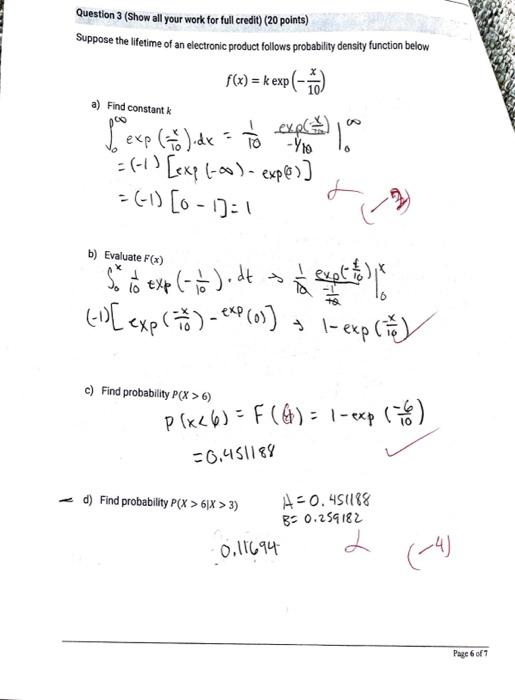 Question 3 (Show all your work for full credit) (20 points)
Suppose the lifetime of an electronic product follows probability density function below
f(x) = k exp(-x/10)
a) Find constant k
∫₀^∞ exp(-x/10)·dx = 1/10 exp(-x/10)/(-1/10) |₀^∞
= (-1) [exp(-∞) - exp(0)]
= (-1) [0 - 1] = 1
b) Evaluate F(x)
∫₀ˣ 1/10 exp(-t/10)·dt → 1/10 exp(-t/10)/(-1/10) |₀ˣ
(-1)[exp(-x/10) - exp(0)] → 1-exp(-x/10) ✓
c) Find probability P(X > 6)
P(x<6) = F(6) = 1-exp(-6/10)
= 0.451188 ✓
d) Find probability P(X > 6|X > 3)
A = 0.451188
B = 0.259182
0.11694 (-4)
Page 6 of 7